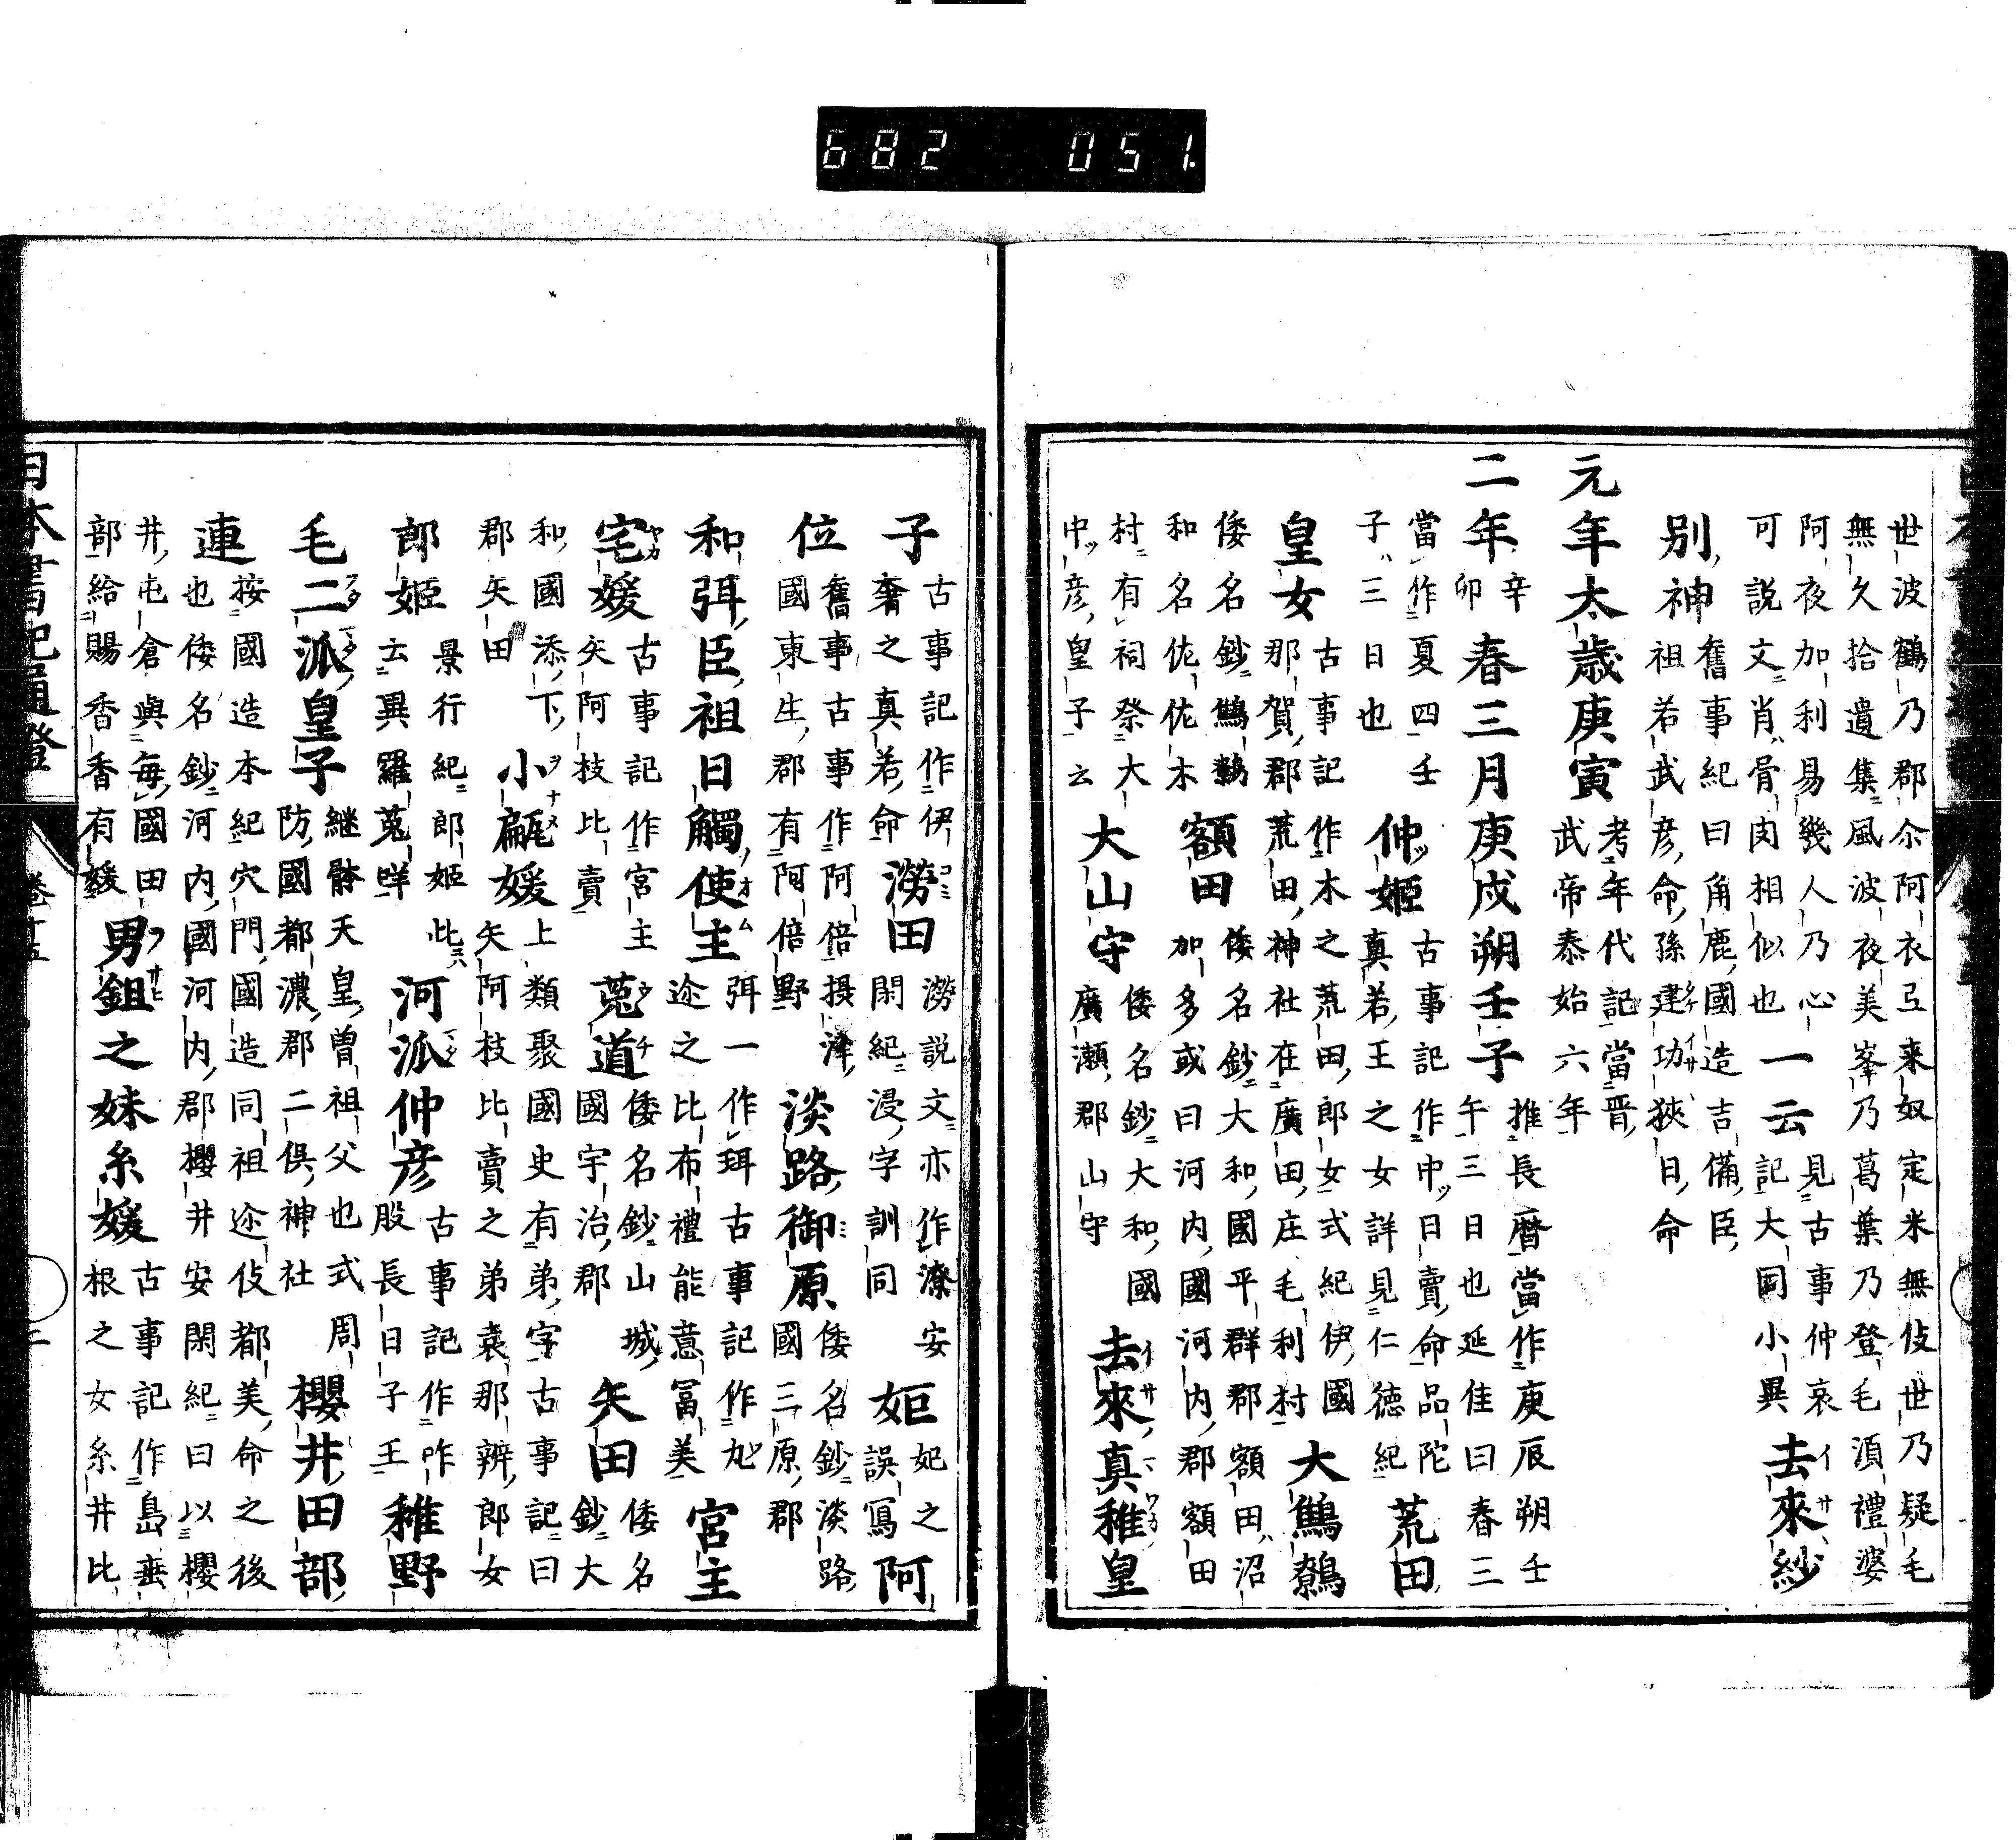 682 051
世波鶴乃郡尒阿衣弖来奴定米無伎世世乃疑毛
無久拾遺集風波夜美峯乃葛葉乃登毛湏禮婆
阿夜加利易幾人乃心一云見古事仲哀
可説文肖骨肉相似也記大同小異
去來紗
別神舊事紀曰角鹿國造吉備臣
祖若武彦命孫建功狹日命
元年太歳庚寅考年代記當晋
武帝泰始六年
二年辛
卯春三月庚戌朔壬子推長暦當作庚辰朔壬
午三日也延佳曰春三
當作夏四壬
子三日也仲姫古事記作中日賣命品陀
真若王之女詳見仁徳紀荒田
皇女古事記作木之荒田郎女式紀伊國
那賀郡荒田神社在廣田庄毛利村大鷦鷯
倭名鈔鷦鷯
和名佐佐木額田倭名鈔大和國平群郡額田沼
加多或曰河内國河内郡額田
村有祠祭大
中彦皇子云大山守倭名鈔大和國
廣瀬郡山守去來真稚皇
子古事記作伊
奢之真若命澇田澇説文亦作潦安
閑紀浸字訓同妃之
誤寫阿
位舊事古事作阿倍攝津
國東生郡有阿倍野淡路御原倭名鈔淡路
國三原郡
和弭臣祖日觸使主弭一作珥古事記作丸
迩之比布禮能意冨美宮主
宅媛古事記作宮主
矢阿枝比賣菟道倭名鈔山城
國宇治郡矢田倭名
鈔大
和國添下
郡矢田小甂媛上類聚國史有弟字古事記曰
矢阿枝比賣之弟袁那辨郎女
郎姫景行紀郎姫此
云異羅菟咩河派仲彦古事記作咋
股長日子王稚野
毛二派皇子継體天皇曽祖父也式周
防國都濃郡二俣神社櫻井田部
連按國造本紀穴門國造同祖迩伎都美命之後
也倭名鈔河内國河内郡櫻井安閑紀曰以櫻
井屯倉與毎國田
部給賜香香有媛男鉏之妹糸媛古事記作島垂
根之女糸井比
日本書紀通證
卷十五
二